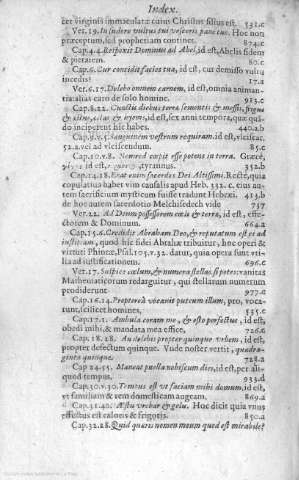 Index.
cet virginis immaculatæ cuius Christus filius est. 531.c
Ver.19. In sudore vultus tui vesceris pane tuo. Hoc non
præceptum, sed prophetiam continet. 874.c
Cap.4.4. Respexit Dominus ad Abel, id est, Abelis fidem
& pietatem. 80.c
Cap.6. Cur concidit facies tua, id est, cur demisso vultu
incedis? 17.a
Ver.6.17. Delebo omnem carnem, id est, omnia animan-
tia: alias caro de solo homine. 913.c
Cap.8.22. Cunctis diebus terra sementis & messis, frigus
& æstus, æstas & hyems, id est, sex anni tempora, quæ quan-
do inciperent hic habes. 440.b
Cap.9.v.5. Sanguinem vestrum requiram. id est, vindicab.
52.a. vel ad viciscendum. 85.c
Cap.10.v.8. Nemrod cœpit esse potens in terra. Græcè,
id est, tyrannus. 352.b
Cap.14.18. Erat enim sacerdos Dei Altissimi. Rectè, quia
copulatius habet vim causalis apud Heb. 332.c. eius au-
tem sacrificium mysticum fuisse tradunt Hebræi. 413.b
de hoc autem sacerdotio Melchisedech vide 737
Ver.22. Ad Deum possessorem cœli & terra, id est, effec-
torem & Dominum. 664.a
Cap.15.6. Credidit Abraham Deo, & reputatum est ei ad
iustitiam, quod hic fidei Abrahæ tribuitur, hoc operi &
virtuti Phineæ, Psal.105.v.32. datur, quia opera sunt vti-
lia ad iustificationem. 696.c
Ver.17. Suspice cœlum, & numera stellas si potes: vanitas
Mathematicorum redarguitur, qui stellarum numerum
prodiderunt 977.a
Cap.16.14. Propterea vocauit puteum illum, pro, voca-
runt, scilicet homines. 535.c
Cap.17.1. Ambula coram me, & esto perfectus, id est,
obedi mihi, & mandata mea effice. 726.c
Cap.18.28. An delebis propter quinque vrbem, id est,
propter defectum quinque. Vnde noster vertit, quadra-
ginta quinque. 728.a
Cap 24.55. Maneat puella nobiscum dies, id est, per ali-
quod tempus. 933.d
Cap.30.v.30. Tempus est vt faciam mihi domum, id est,
vt familiam & rem domesticam augeam. 869.a
Cap.31.40. Æstu vrebar & gelu. Hoc dicit quia vnus
effectus est caloris & frigoris. 850.a
Cap.32.28. Quid quæris nomen meum quod est mirabile?